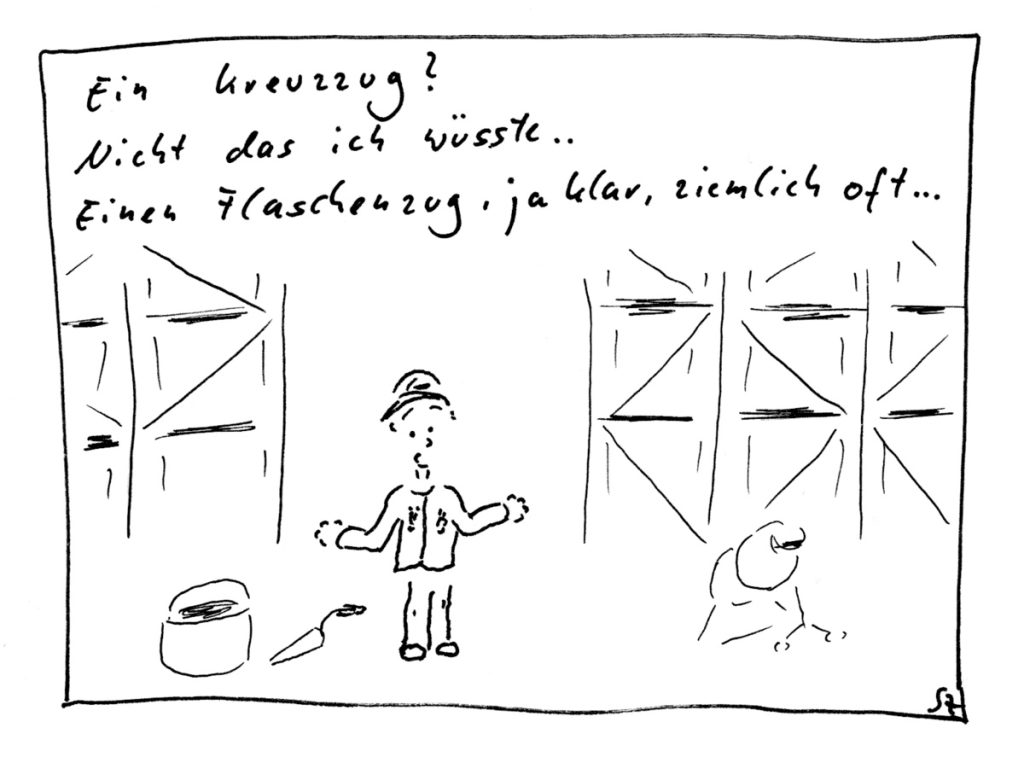 Ein Kreuzzug?
Nicht das ich wüsste..
Einen Flaschenzug, ja klar, ziemlich oft...
SZ